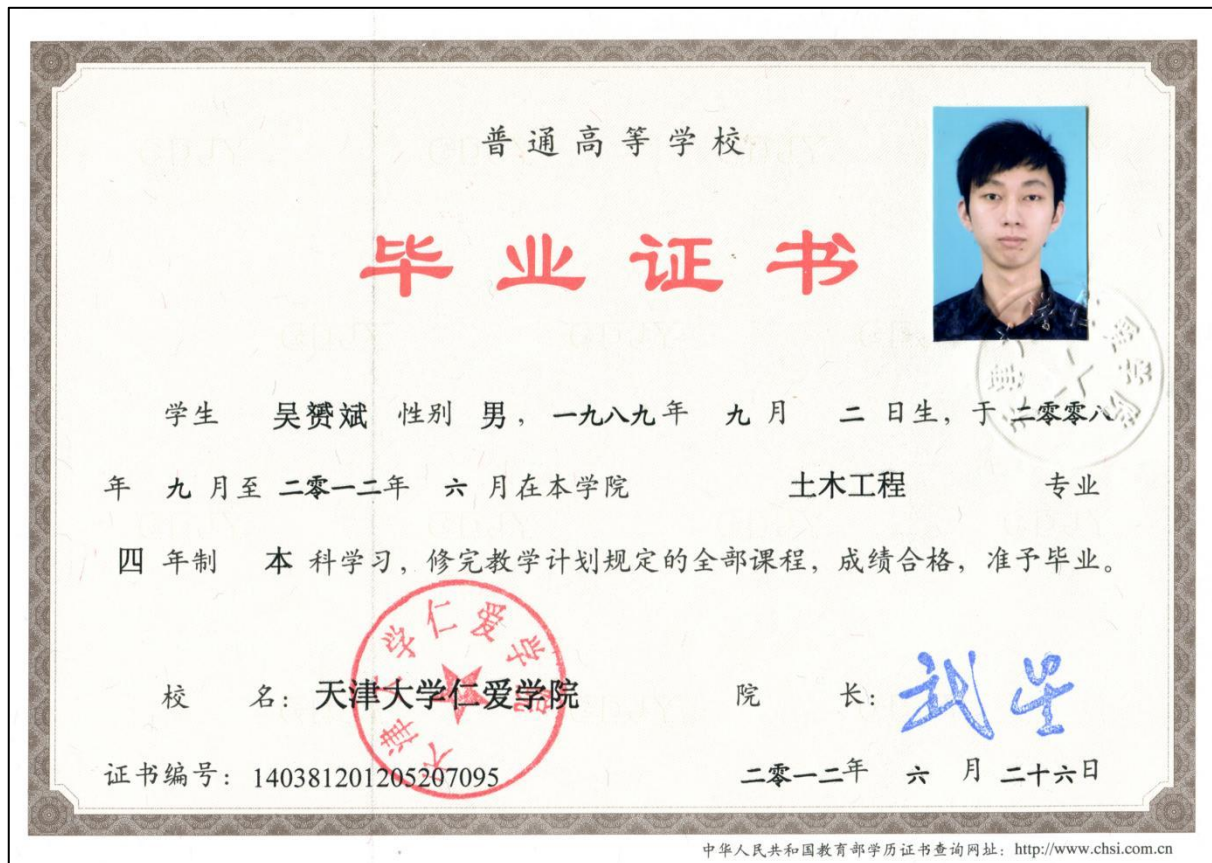 普通高等学校
毕业证书
学生 吴赟斌 性别 男，一九八九年 九月 二日生，于二零零八
年 九月至二零一二年 六月在本学院 土木工程 专业
四年制 本科学习，修完教学计划规定的全部课程，成绩合格，准予毕业。
天津大学仁爱学院
校 名：天津大学仁爱学院 院 长：
证书编号：140381201205207095 二零一二年 六月二十六日
中华人民共和国教育部学历证书查询网址：http://www.chsi.com.cn